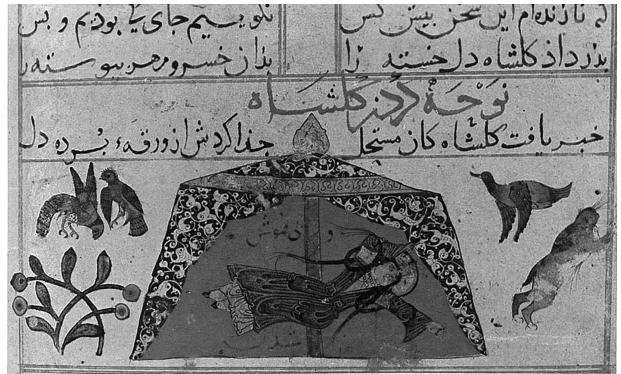 که تا زنده‌ام این سخن پیش کس نگوییم جای بوذیم و بس
بدر داذ کلشاه دل خسته را بذان خسرو مهر پیوسته را
نوحه کردن کلشاه
خبر یافت کلشاه کان مستحل جذا کردش از ورقهٔ برده دل
هوش